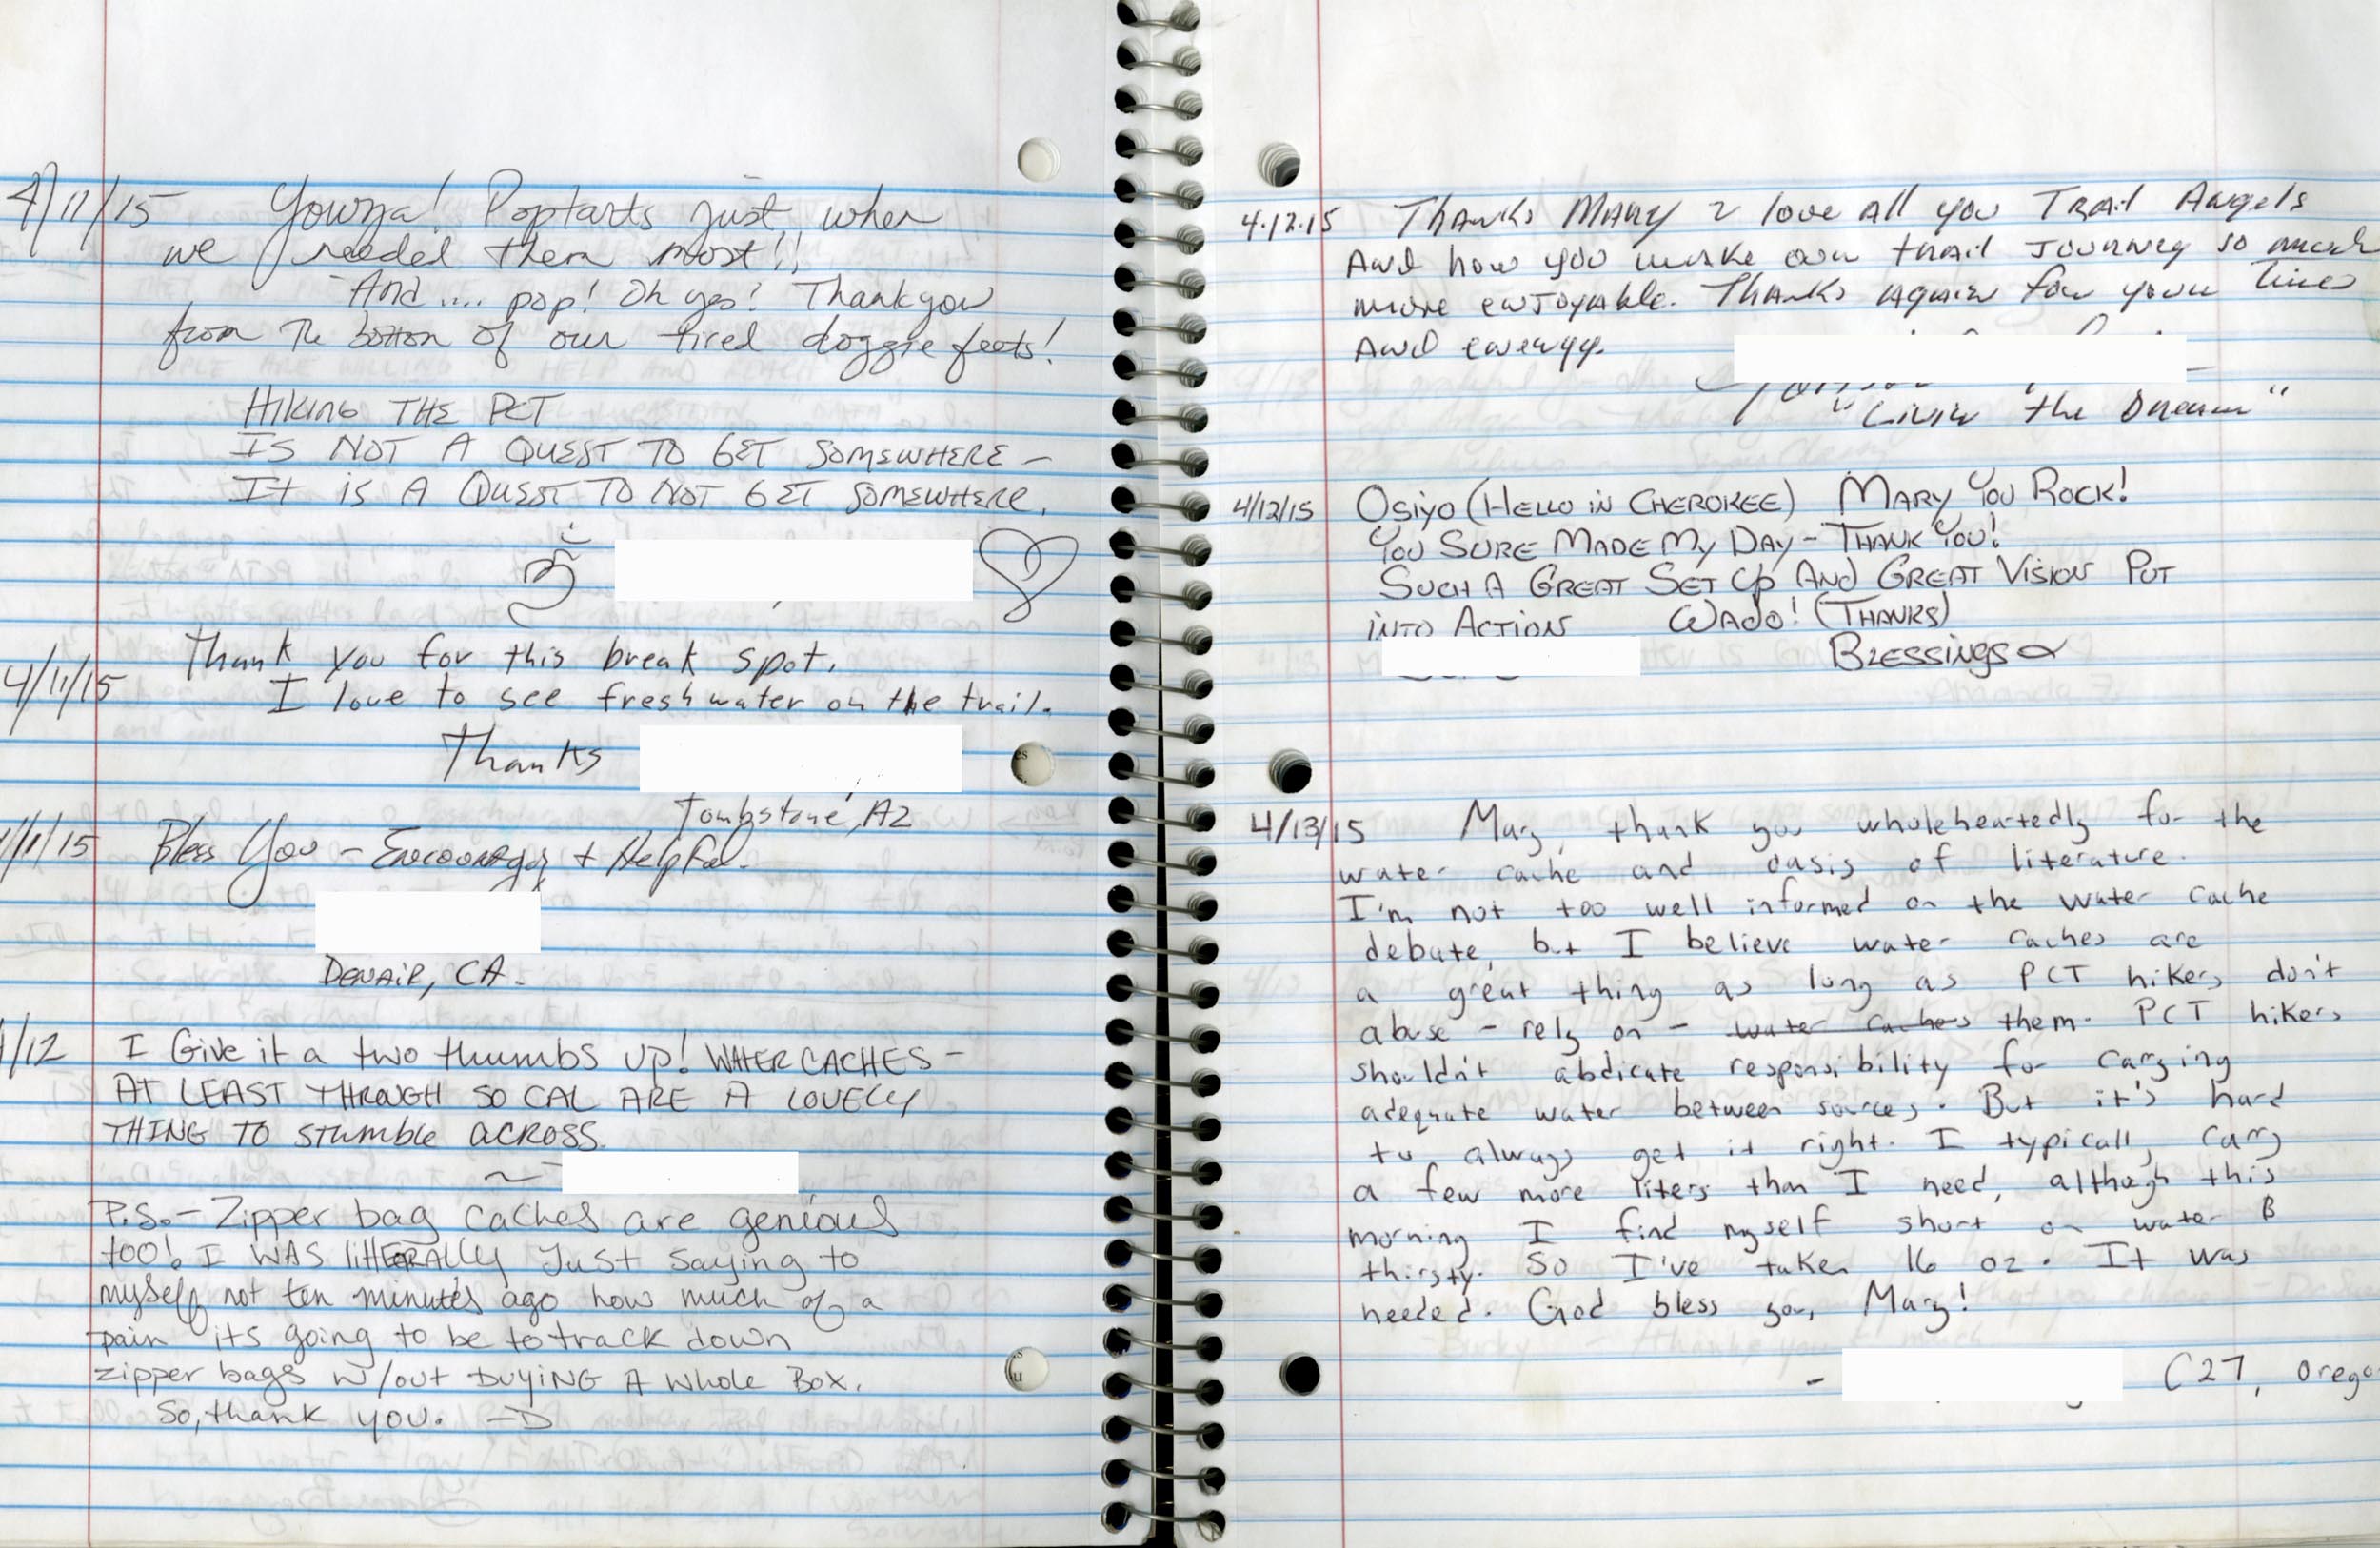 4/11/15 Yowza! Poptarts just when
we needed them most!!
And .... pop! Oh yes! Thank you
from The bottom of our tired doggie feets!
HIKING THE PCT
IS NOT A QUEST TO GET SOMEWHERE –
It is A QUEST TO NOT GET SOMEWHERE.
4/11/15 Thank you for this break spot.
I love to see fresh water on the trail.
Thanks
Tombstone, AZ
/11/15 Bless You – Encouraging + Helpful.
DENAIR, CA.
/12 I Give it a two thumbs up! WATER CACHES –
AT LEAST THROUGH SO CAL ARE A LOVELY
THING TO STUMBLE ACROSS.
~
P.S. – Zipper bag caches are genious
too! I WAS littERALLY Just saying to
myself not ten minutes ago how much of a
pain its going to be to track down
zipper bags w/out buyING A whole Box.
So, thank you. –D
4.12.15 Thanks MARY I love all you Trail Angels
And how you make our trail Journey so much
more enjoyable. Thanks again for your time
And energy.
"Livin the Dream"
4/12/15 Osiyo (Hello in CHEROKEE) MARY YOU ROCK!
YOU SURE MADE MY DAY – THANK YOU!
SUCH A GREAT SET UP AND GREAT VISION PUT
INTO ACTION WADO! (THANKS)
BLESSINGS
4/13/15 Mary, thank you wholeheartedly for the
water cache and oasis of literature.
I'm not too well informed on the water cache
debate, but I believe water caches are
a great thing as long as PCT hikers don't
abuse – rely on – water caches them. PCT hikers
shouldn't abdicate responsibility for carrying
adequate water between sources. But it's hard
to always get it right. I typically carry
a few more liters than I need, although this
morning I find myself short on water &
thirsty. So I've taken 16 oz. It was
needed. God bless you, Mary!
– (27, Orego